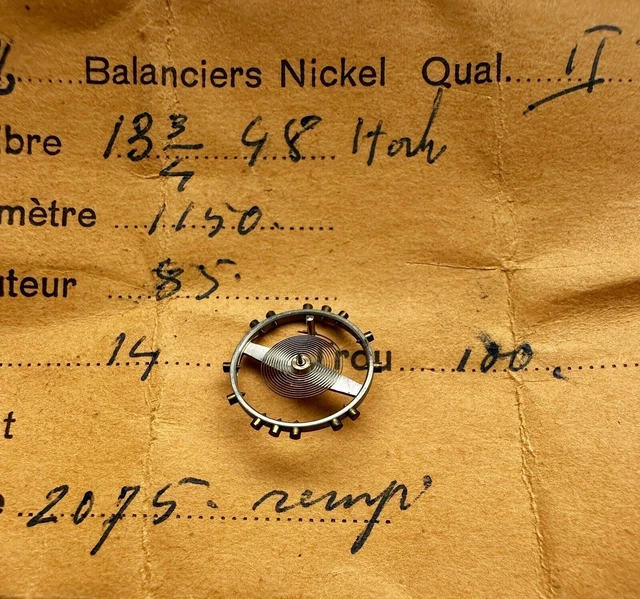 Balanciers Nickel Qual. II
bre 13 3/4 48 Hoch
mètre 1150.
uteur 85.
14 rou 100.
t
e 2075. remp